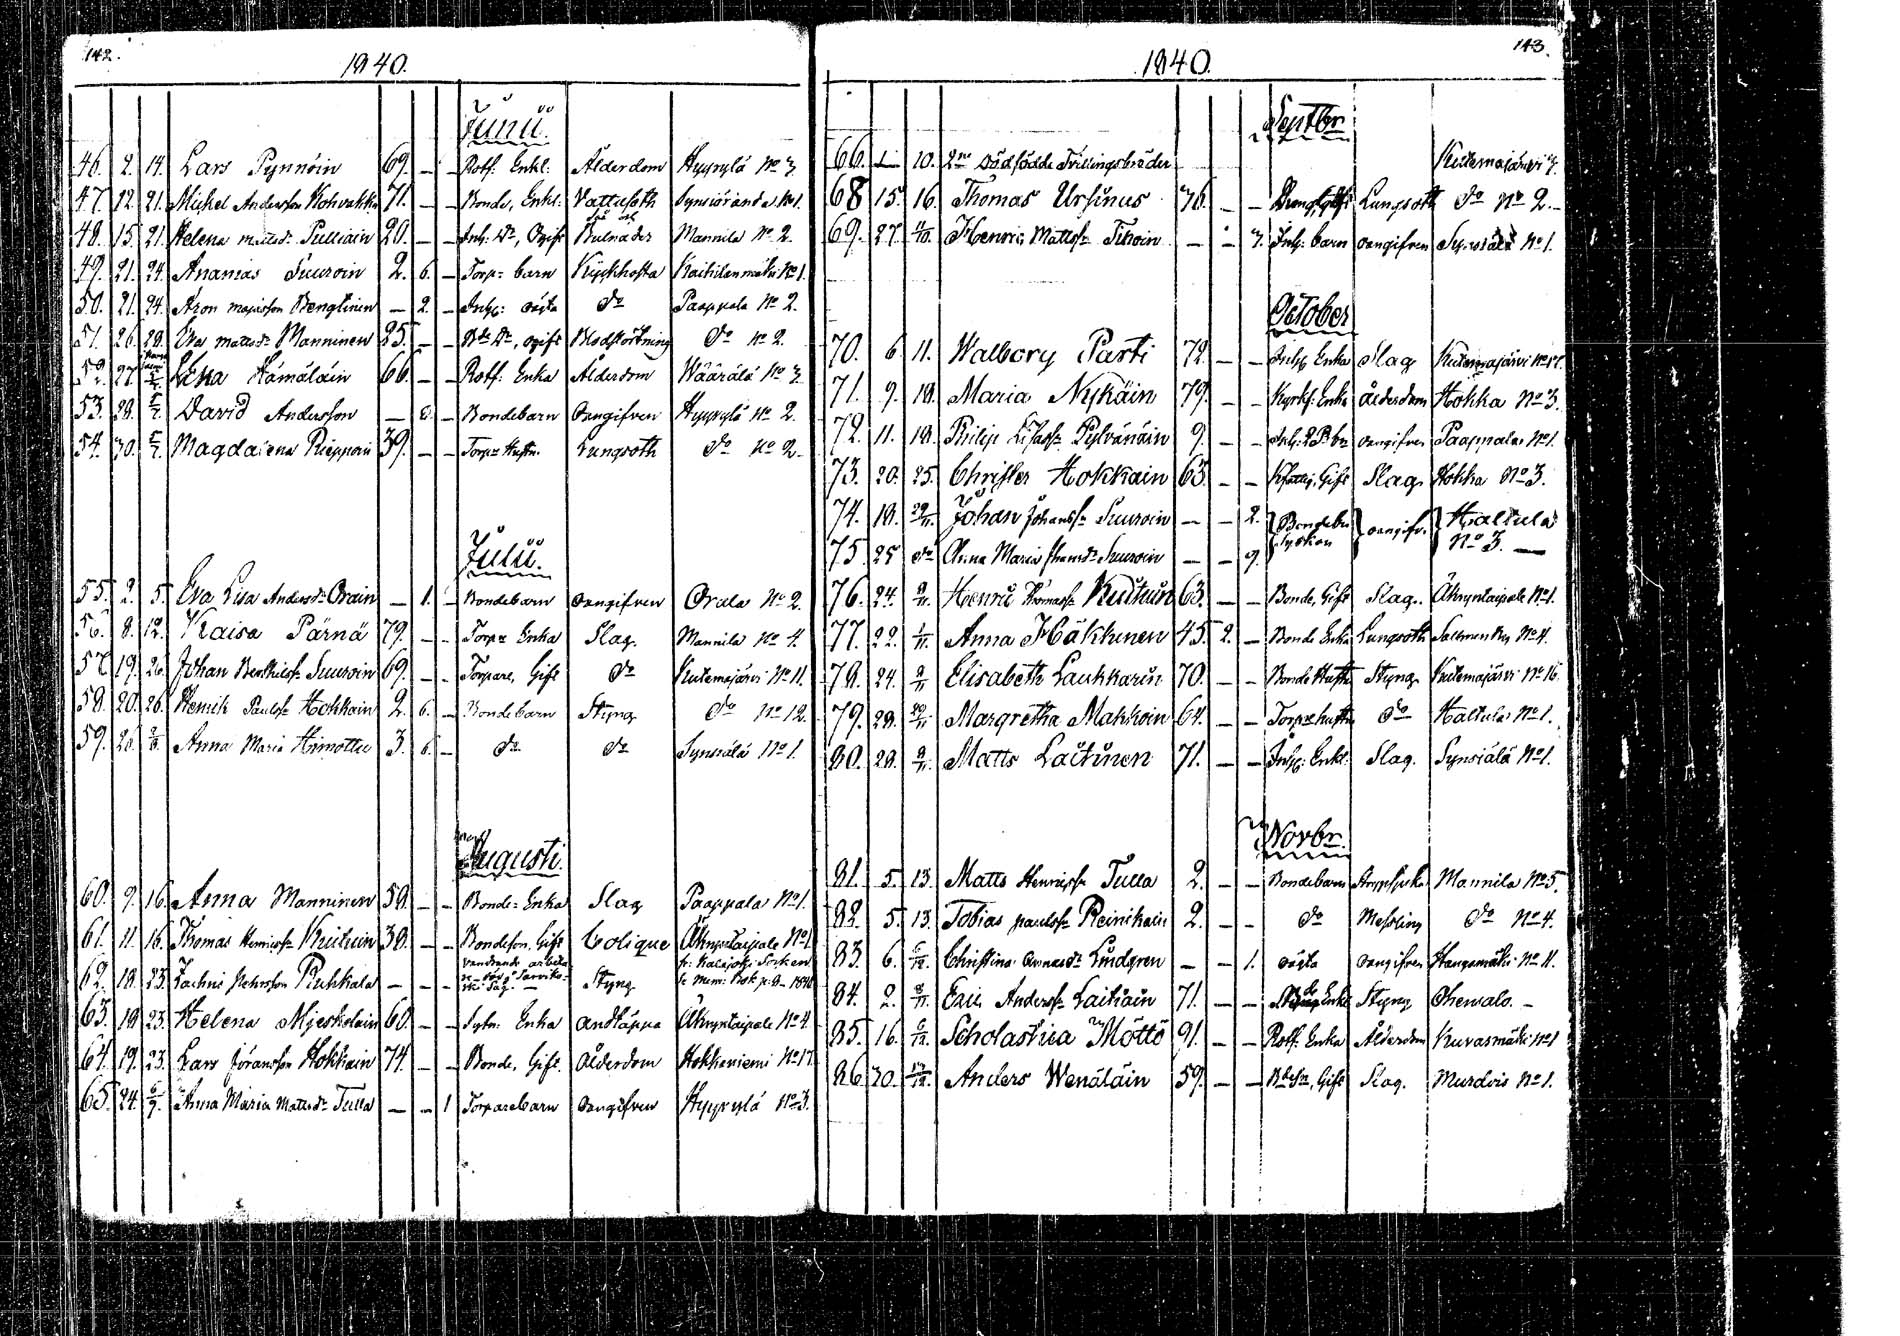 142.
1840.
Junii.
46. 2. 14. Lars Pynnöin 69. – – Rotf: Enkl: Ålderdom Hyyrylä No 3.
47. 12. 21. Michel Andersson Kohvakka 71. – – Bonde, Enkl. Vattusoth No 1.
48. 15. 21. Helena Mattsdr Pulliain 20. – – Inh: Dr, Ogift Bulnader Mannila No 2.
49. 21. 24. Ananias Suuroin 2. 6. – Torp: barn Kikhosta Kaitilanmäki No 1.
50. 21. 24. Aron Benglinen – 2. – Inh: do Paappala No 2.
51. 26. 28. Eva Mattsdr Manninen 25. – – Bde Dr, ogift Blodstörtning do No 2.
52. 27. Hämäläin 66. – – Rotf: Enka Ålderdom Wäärälä No 3.
53. 28. 5/7. David Andersson – 8. – Bondebarn Oangifven Hyyrylä No 2.
54. 30. 5/7. Magdalena Rieppoin 39. – – Torpe Hustru Lungsoth do No 2.
Julii.
55. 2. 5. Eva Lisa Andersdr Orain – 1. – Bondebarn oangifven Orala No 2.
56. 8. 12. Kaisa Pärnä 79. – – Torpe Enka Slag. Mannila No 4.
57. 19. 26. Johan Bertilsson Suuroin 69. – – Torpare, Gift do Kutemajärvi No 11.
58. 20. 26. Henrik Paulss. Hokkain 2. 6. – Bondebarn Styng do No 12.
59. 26. 2/8. Anna Maria Himottu 3. 6. – do do Synsiälä No 1.
Augusti.
60. 9. 16. Anna Manninen 58. – – Bonde-Enka Slag Paappala No 1.
61. 11. 16. Thomas Henricss. Kuituin 38. – – Bondeson, Gift Colique Äkryntaipale No 1.
62. 18. 23. Zachris Pehrsson Ruhkala – – – vandrande arbeta Styng fr: Kalajoki Socken
63. 18. 23. Helena Mjeskolain 60. – – Sytn: Enka andtäppa Äkryntaipale No 4.
64. 19. 23. Lars Göransson Hokkain 74. – – Bonde, Gift. Ålderdom Hokkaniemi No 17.
65. 24. 6/9. Anna Maria Mattsdr Tulla – – 1 Torparebarn oangifven Hyyrylä No 3.
143.
1840.
Septbr
66. 1 10. 2ne dödfödda Tvillingsbröder Kutemajärvi 7.
68 15. 16. Thomas Ursinus 76. – – Lungsoth do No 2.
69. 27. 4/10. Henric Mattss. Tihoin – – 3. Inh: barn oangifven Synsiälä No 1.
October
70. 6. 11. Walbory Parti 72. – – Inhs Enka Slag Kutemajärvi No 17.
71. 9. 18. Maria Nykäin 79. – – Kyrkf: Enka ålderdom Hokka No 3.
72. 11. 18. Philip Pylvänäin 9. – – oangifven Paappala No 1.
73. 20. 25. Christer Hokkain 63. – – Kfattig, Gift Slag. Hokka No 3.
74. 18. 29/11. Johan Johanss. Suuroin – – 2. Bondebn Syskon oangifv. Haltula No 3.
75. 25 do Anna Maria Suuroin – – 9.
76. 24. 8/11. Henric Thomass. Kuituin 63. – – Bonde, Gift Slag. Äkryntaipale No 1.
77. 22. 1/11. Anna Häkkinen 45. 2. – Bonde Enka Lungsoth No 4.
78. 24. 8/11. Elisabeth Laukkarin 70. – – Bonde Hustru Styng Kutemajärvi No 16.
79. 28. Margretha Makkoin 64. – – Torpe hustru do Haltula No 1.
80. 28. 8/11. Matts Laitinen 71. – – Inhs: Enkl: Slag. Synsiälä No 1.
Novbr.
81. 5. 13. Matts Henricss. Tulla 2. – – Bondebarn Mannila No 5.
82. 5. 13. Tobias Paulss. Reinikain 2. – – do Messling do No 4.
83. 6. 6/12. Christina Lindgren – – 1. oägta oangifven Hangasmäki No 11.
84. 2. 8/11. Eric Anderss. Laitiain 71. – – Enkl Styng Ohensalo. –
85. 16. 6/12. Scholastica Möttö 91. – – Rotf. Enka Ålderdom Kuvasmäki No 1
86 30. 13/12. Anders Wenäläin 59. – – Gift Slag. Murdois No 1.